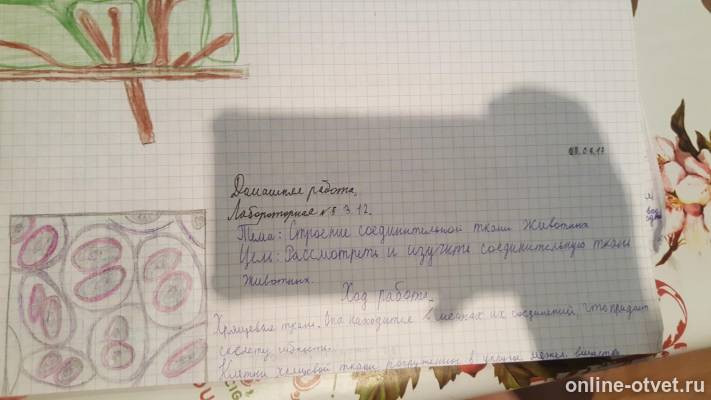 .04.17
Домашняя работа.
Лабороторная №3.12.
Тема: Строение соединительной ткани животных
Цель: Рассмотреть и изучить соединительную ткань
животных.
Ход работы.
Хрящевая ткань. Она находится в местах их соединений, что придает
скелету гибкости.
Клетки хрящевой ткани погруженны в упругое межкл. вещество
online-otvet.ru